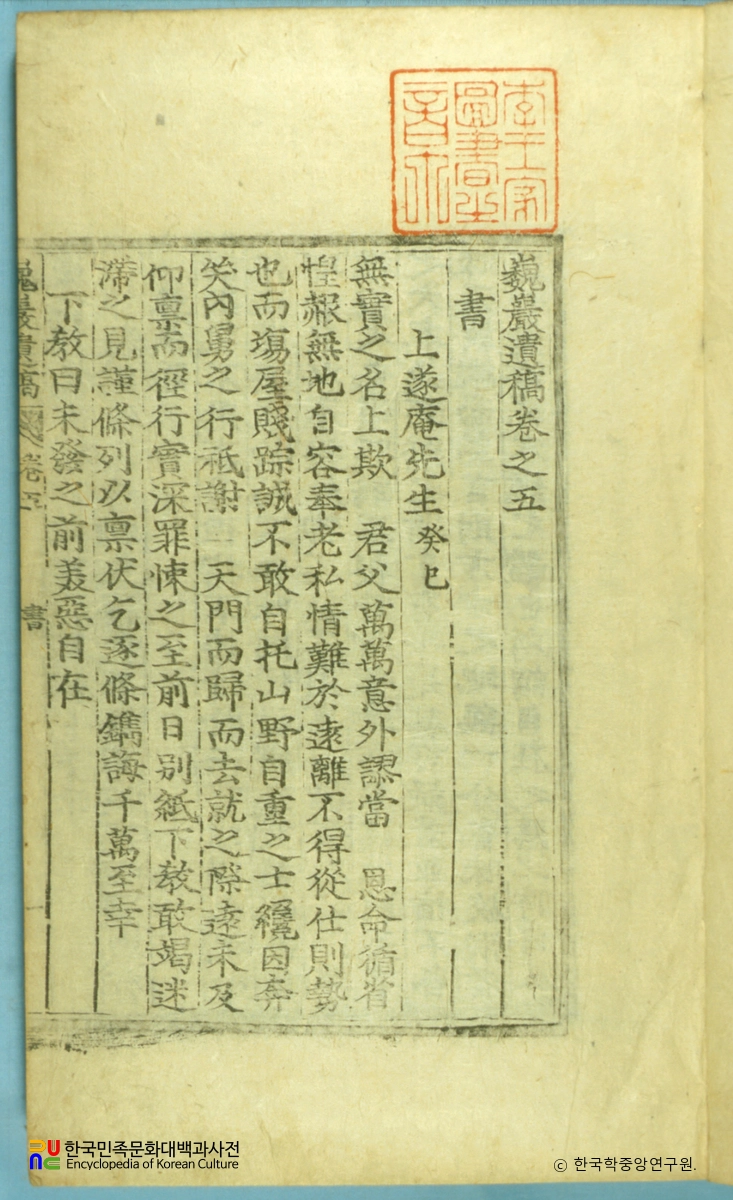 李王家
圖書之
章
巍巖遺稿卷之五
書
上遂庵先生 癸巳
無實之名上欺 君父萬萬意外謬當 恩命循省
惶赧無地自容奉老私情難於遠離不得從仕則勢
也而瘍屋賤踪誠不敢自托山野自重之士纔因奔
哭內舅之行祗謝 天門而歸而去就之際遠未及
仰稟而徑行實深罪悚之至前日別紙下敎敢竭迷
滯之見謹條列以稟伏乞逐條鐫誨千萬至幸
下敎曰未發之前美惡自在
巍巖遺稿 卷五 書
한국민족문화대백과사전
Encyclopedia of Korean Culture
© 한국학중앙연구원.